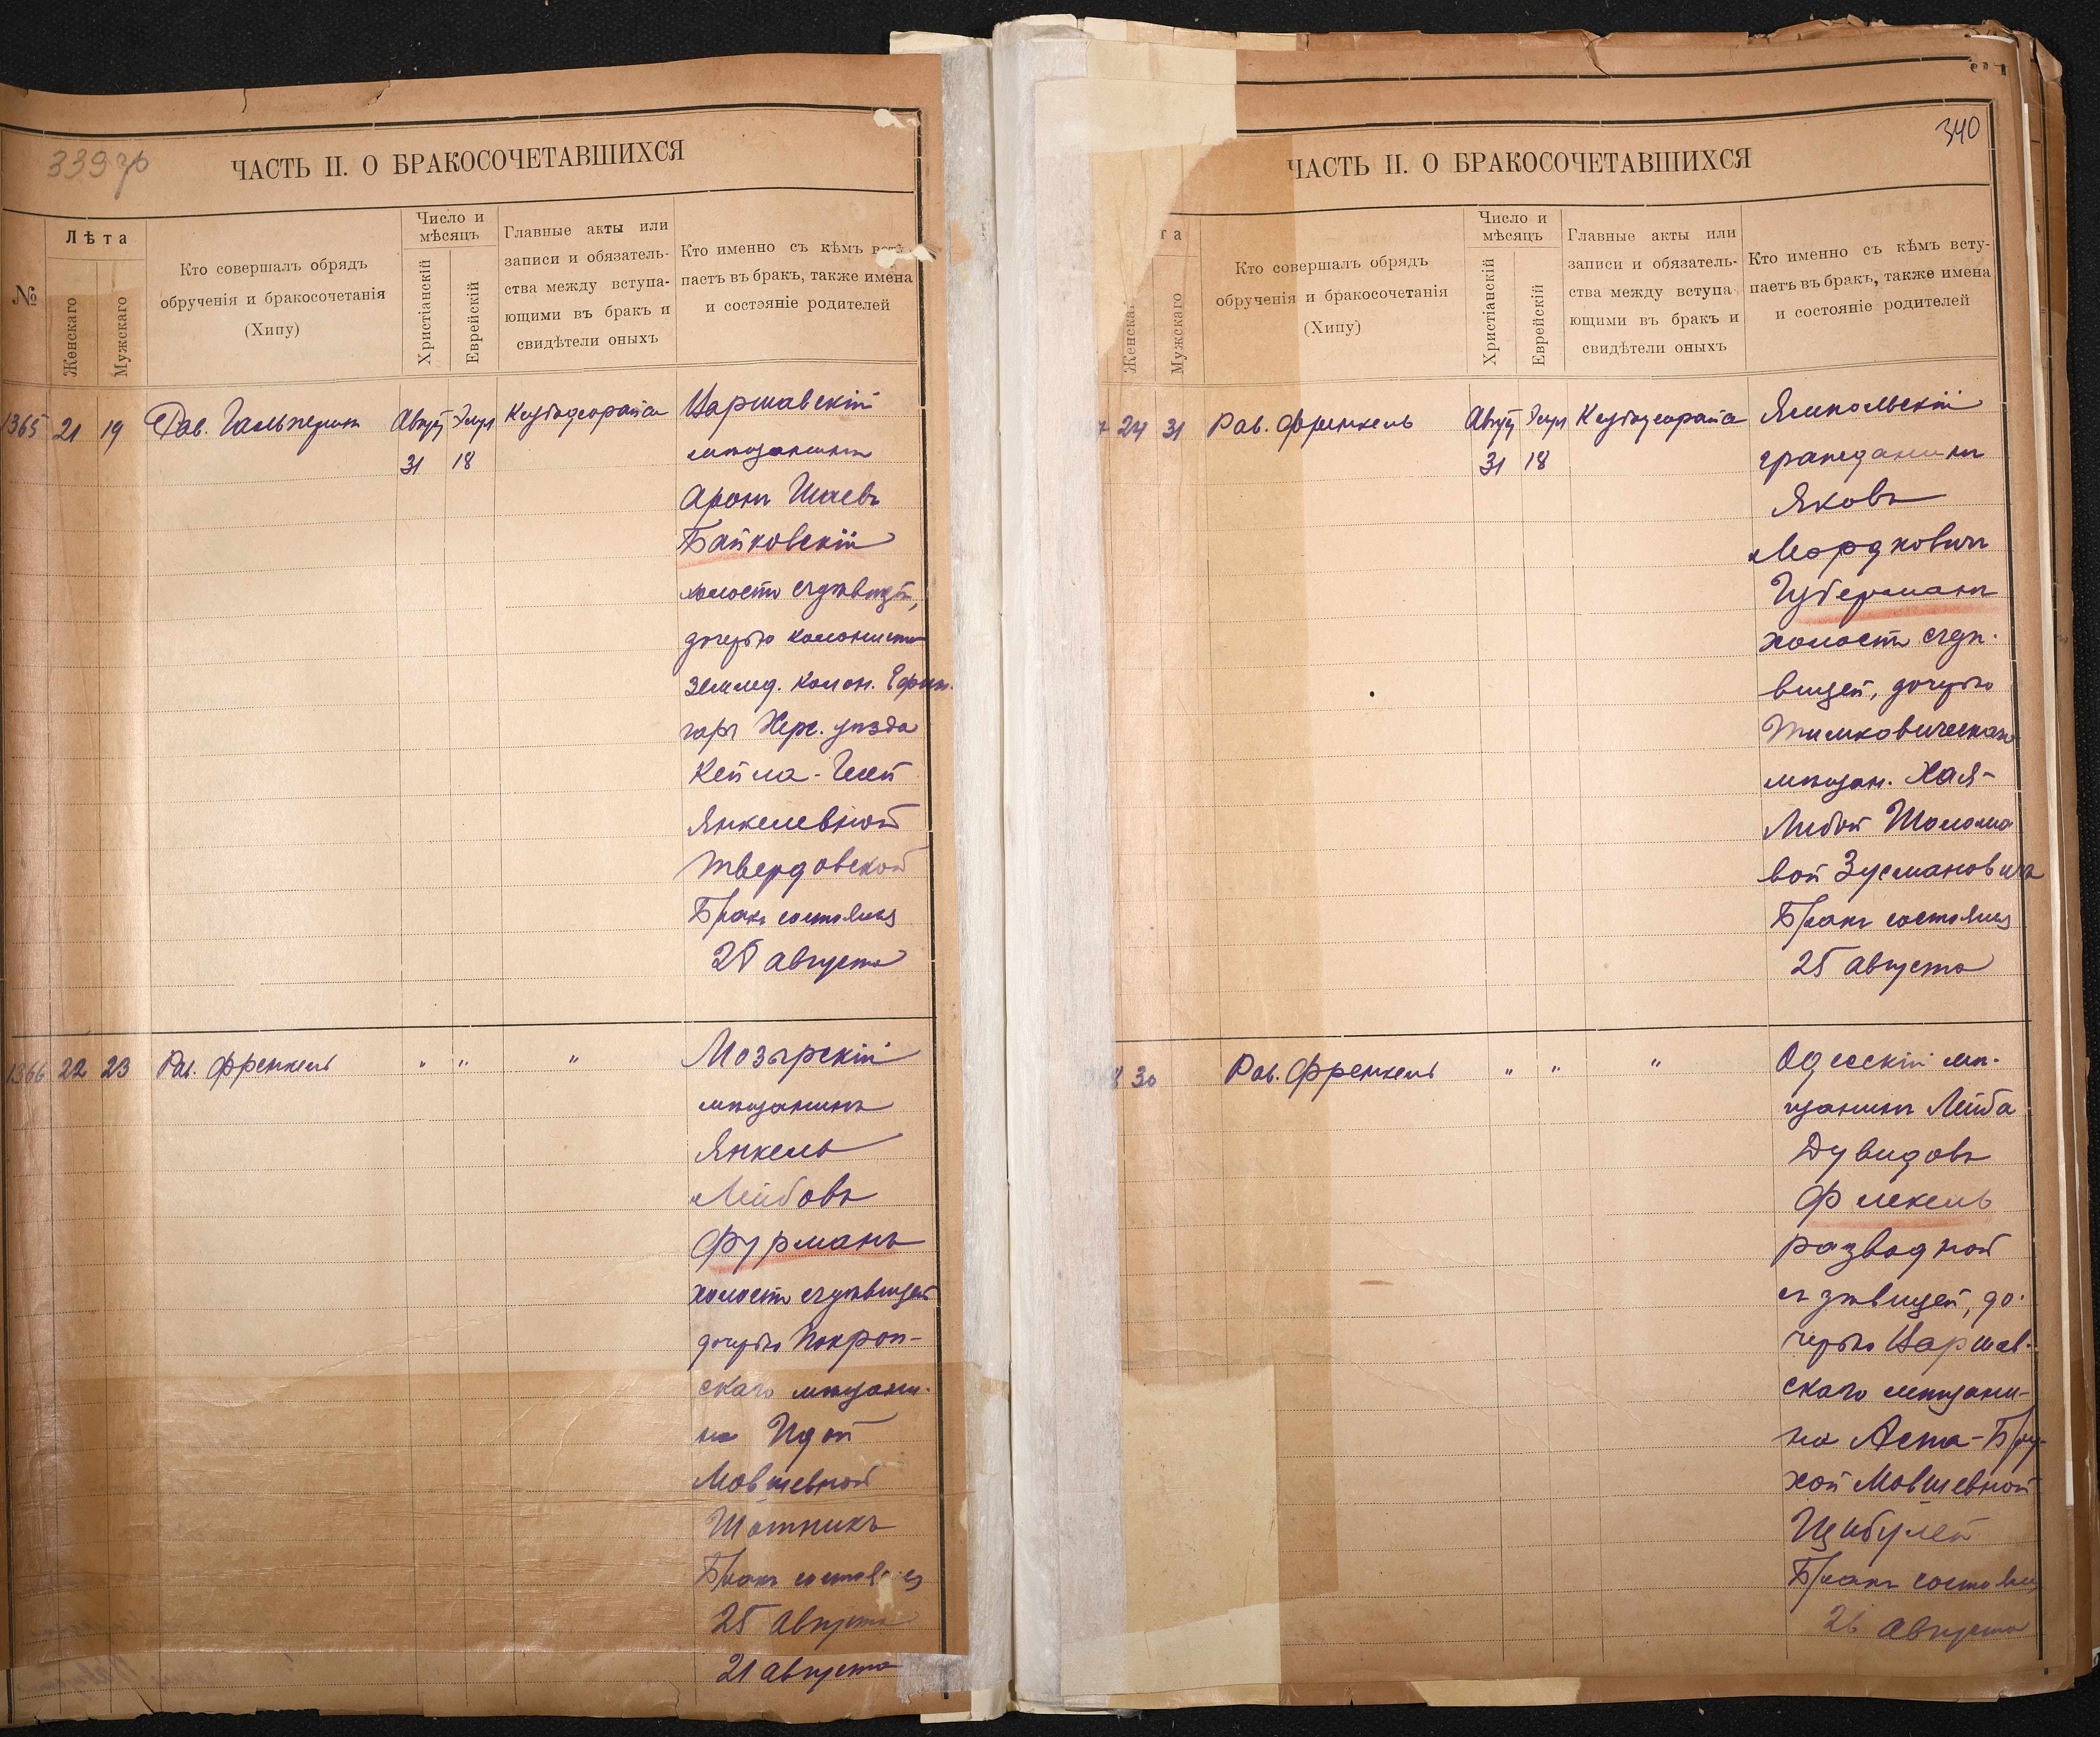 339 зв
ЧАСТЬ II. О БРАКОСОЧЕТАВШИХСЯ
№
Лѣта
Женскаго
Мужскаго
Кто совершалъ обрядъ
обрученія и бракосочетанія
(Хипу)
Число и
мѣсяцъ
Христіанскій
Еврейскій
Главные акты или
записи и обязатель-
ства между вступа-
ющими въ бракъ и
свидѣтели оныхъ
Кто именно съ кѣмъ всту-
паетъ въ бракъ, также имена
и состояніе родителей
1365 21 19 Рав. Гальперинъ
Август 31
Элул 18
Варшавскій
мѣщанинъ
Аронъ Шаевъ
Байковскій
холостъ съ дѣвицей,
дочерью колониста
землед. колон. Ефин-
гарь Херс. уѣзда
Кейла-
Янкелевной
Твердовской
Бракъ состоялся
августа
1366 22 23 Рав. Френкель „ „ „
Мозырскій
мѣщанинъ
Янкель
Лейбовъ
Фурманъ
холостъ съ дѣвицей
дочерью
скаго мѣщани-
на Идой
Мовшевной
Бракъ состоялся
25 августа
21 августа
340
ЧАСТЬ II. О БРАКОСОЧЕТАВШИХСЯ
та
Женскаг
Мужскаго
Кто совершалъ обрядъ
обрученія и бракосочетанія
(Хипу)
Число и
мѣсяцъ
Христіанскій
Еврейскій
Главные акты или
записи и обязатель-
ства между вступа-
ющими въ бракъ и
свидѣтели оныхъ
Кто именно съ кѣмъ всту-
паетъ въ бракъ, также имена
и состояніе родителей
7 24 31 Рав. Френкель
Август 31
Элул 18
Ямпольскій
гражданинъ
Яковъ
Мордковичъ
Губерманъ
холостъ съ дѣ-
вицей, дочерью
Тимковическаго
мѣщан. Хая-
Либой Шоломо
вой Зусмановича
Бракъ состоялся
25 августа
8 30 Рав. Френкель „ „ „
Одесскій мѣ-
щанинъ Лейба
Дувидовъ
Флекель
разводной
съ дѣвицей, до-
черью Варшав-
скаго мѣщани-
на Бру-
хой Мовшевной
Цибулей
Бракъ состоялся
26 августа